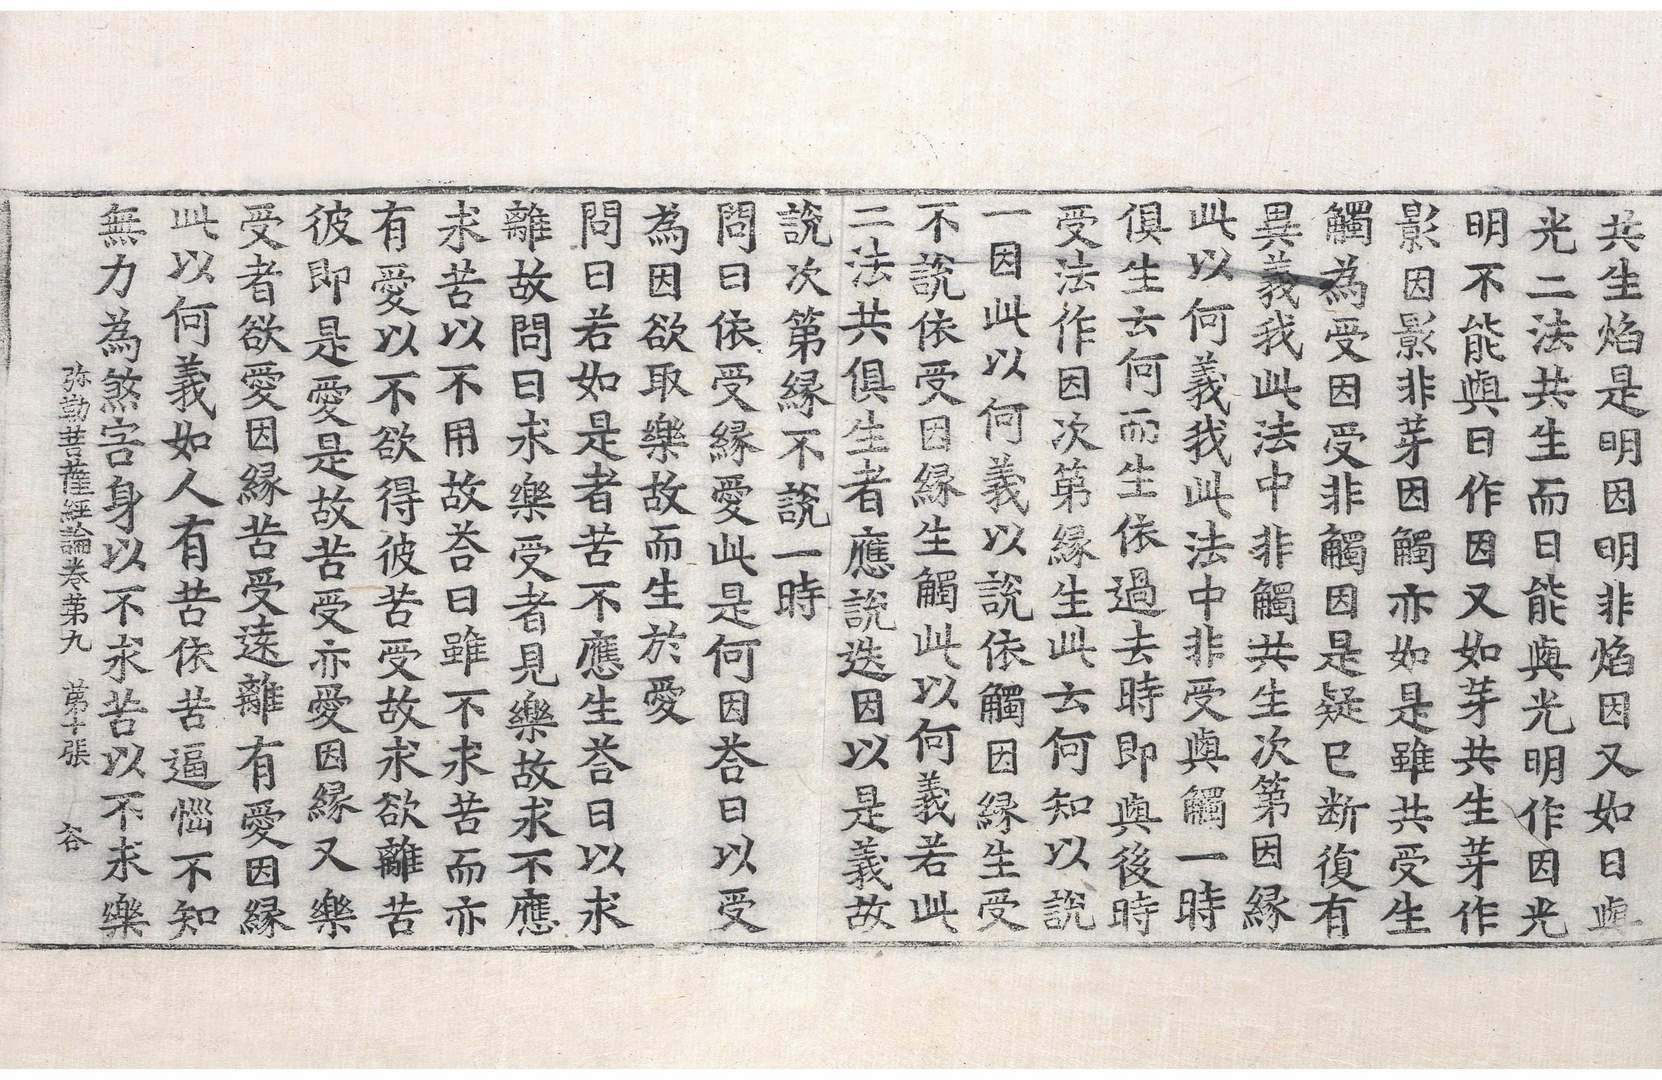 共生焰是明因明非焰因又如日與
光二法共生而日能與光明作因光
明不能與日作因又如芽共生芽作
影因影非芽因觸亦如是雖共受生
觸為受因受非觸因是疑已断復有
異義我此法中非觸共生次第因縁
此以何義我此法中非受與觸一時
俱生云何而生依過去時即與後時
受法作因次第縁生此云何知以說
一因此以何義以說依觸因縁生受
不說依受因縁生觸此以何義若此
二法共俱生者應說迭因以是義故
說次第縁不說一時
問曰依受縁愛此是何因荅曰以受
為因欲取樂故而生於愛
問曰若如是者苦不應生荅曰以求
離故問曰求樂受者見樂故求不應
求苦以不用故荅曰雖不求苦而亦
有愛以不欲得彼苦受故求欲離苦
彼即是愛是故苦受亦愛因縁又樂
受者欲愛因縁苦受遠離有愛因縁
此以何義如人有苦依苦逼惱不知
無力為煞害身以不求苦以不求樂
弥勒菩薩經論卷第九 第十張 容